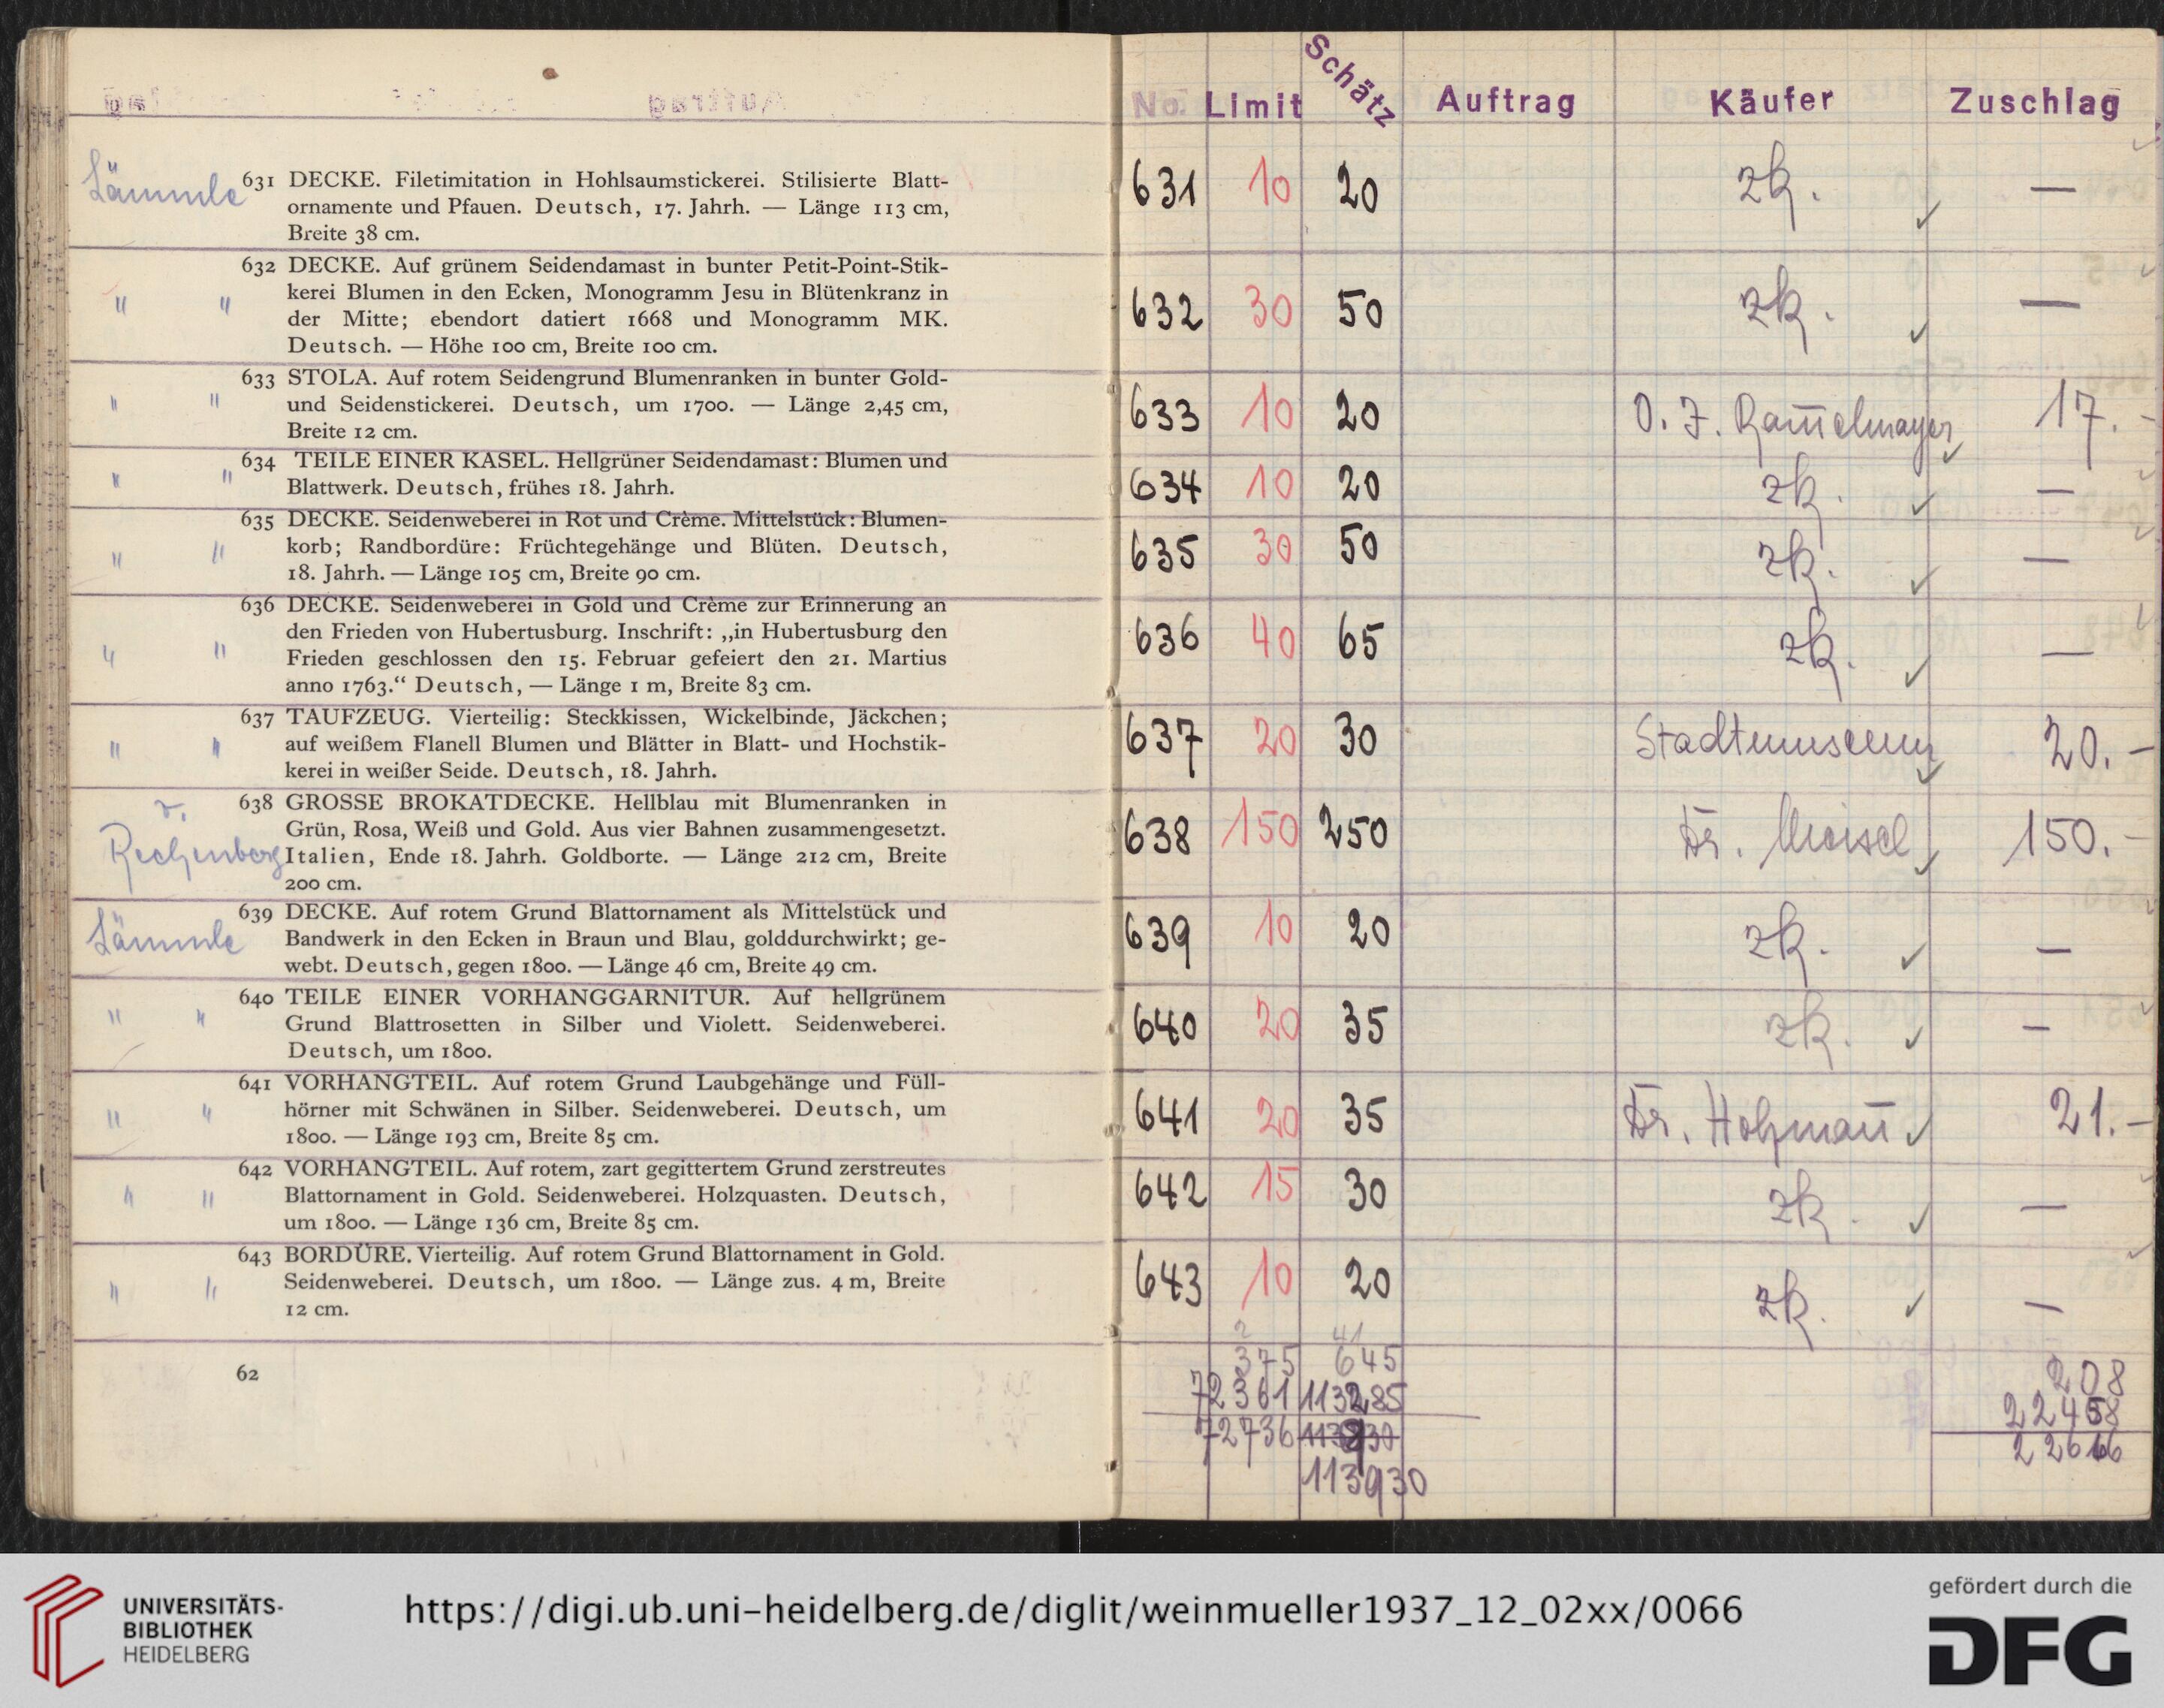 Lämmle
631 DECKE. Filetimitation in Hohlsaumstickerei. Stilisierte Blatt-
ornamente und Pfauen. Deutsch, 17. Jahrh. — Länge 113 cm,
Breite 38 cm.
" " 632 DECKE. Auf grünem Seidendamast in bunter Petit-Point-Stik-
kerei Blumen in den Ecken, Monogramm Jesu in Blütenkranz in
der Mitte; ebendort datiert 1668 und Monogramm MK.
Deutsch. — Höhe 100 cm, Breite 100 cm.
" " 633 STOLA. Auf rotem Seidengrund Blumenranken in bunter Gold-
und Seidenstickerei. Deutsch, um 1700. — Länge 2,45 cm,
Breite 12 cm.
" " 634 TEILE EINER KASEL. Hellgrüner Seidendamast: Blumen und
Blattwerk. Deutsch, frühes 18. Jahrh.
" " 635 DECKE. Seidenweberei in Rot und Crème. Mittelstück: Blumen-
korb; Randbordüre: Früchtegehänge und Blüten. Deutsch,
18. Jahrh. — Länge 105 cm, Breite 90 cm.
" " 636 DECKE. Seidenweberei in Gold und Crème zur Erinnerung an
den Frieden von Hubertusburg. Inschrift: „in Hubertusburg den
Frieden geschlossen den 15. Februar gefeiert den 21. Martius
anno 1763.“ Deutsch, — Länge 1 m, Breite 83 cm.
" " 637 TAUFZEUG. Vierteilig: Steckkissen, Wickelbinde, Jäckchen;
auf weißem Flanell Blumen und Blätter in Blatt- und Hochstik-
kerei in weißer Seide. Deutsch, 18. Jahrh.
v.
Rechenberg
638 GROSSE BROKATDECKE. Hellblau mit Blumenranken in
Grün, Rosa, Weiß und Gold. Aus vier Bahnen zusammengesetzt.
Italien, Ende 18. Jahrh. Goldborte. — Länge 212 cm, Breite
200 cm.
Lämmle
639 DECKE. Auf rotem Grund Blattornament als Mittelstück und
Bandwerk in den Ecken in Braun und Blau, golddurchwirkt; ge-
webt. Deutsch, gegen 1800. — Länge 46 cm, Breite 49 cm.
" " 640 TEILE EINER VORHANGGARNITUR. Auf hellgrünem
Grund Blattrosetten in Silber und Violett. Seidenweberei.
Deutsch, um 1800.
" " 641 VORHANGTEIL. Auf rotem Grund Laubgehänge und Füll-
hörner mit Schwänen in Silber. Seidenweberei. Deutsch, um
1800. — Länge 193 cm, Breite 85 cm.
" " 642 VORHANGTEIL. Auf rotem, zart gegittertem Grund zerstreutes
Blattornament in Gold. Seidenweberei. Holzquasten. Deutsch,
um 1800. — Länge 136 cm, Breite 85 cm.
" " 643 BORDÜRE. Vierteilig. Auf rotem Grund Blattornament in Gold.
Seidenweberei. Deutsch, um 1800. — Länge zus. 4 m, Breite
12 cm.
62
No. Limit Schätz Auftrag Käufer Zuschlag
631 10 20 zk. ✓ —
632 30 50 zk. ✓ —
633 10 20 O. J. Ram̄elmayer ✓ 17.-
634 10 20 zk. ✓ —
635 30 50 zk. ✓ —
636 40 65 zk. ✓ —
637 20 30 Stadtmuseum ✓ 20.-
638 150 250 Fr. Meisel ✓ 150.-
639 10 20 zk. ✓ —
640 20 35 zk. ✓ —
641 20 35 Fr. Holzman̄ ✓ 21.-
642 15 30 zk. ✓ —
643 10 20 zk. ✓ —
2 41
375 645 208
72361 113285 22458
72736 22666
113930
UNIVERSITÄTS-
BIBLIOTHEK
HEIDELBERG
https://digi.ub.uni-heidelberg.de/diglit/weinmueller1937_12_02xx/0066
gefördert durch die
DFG